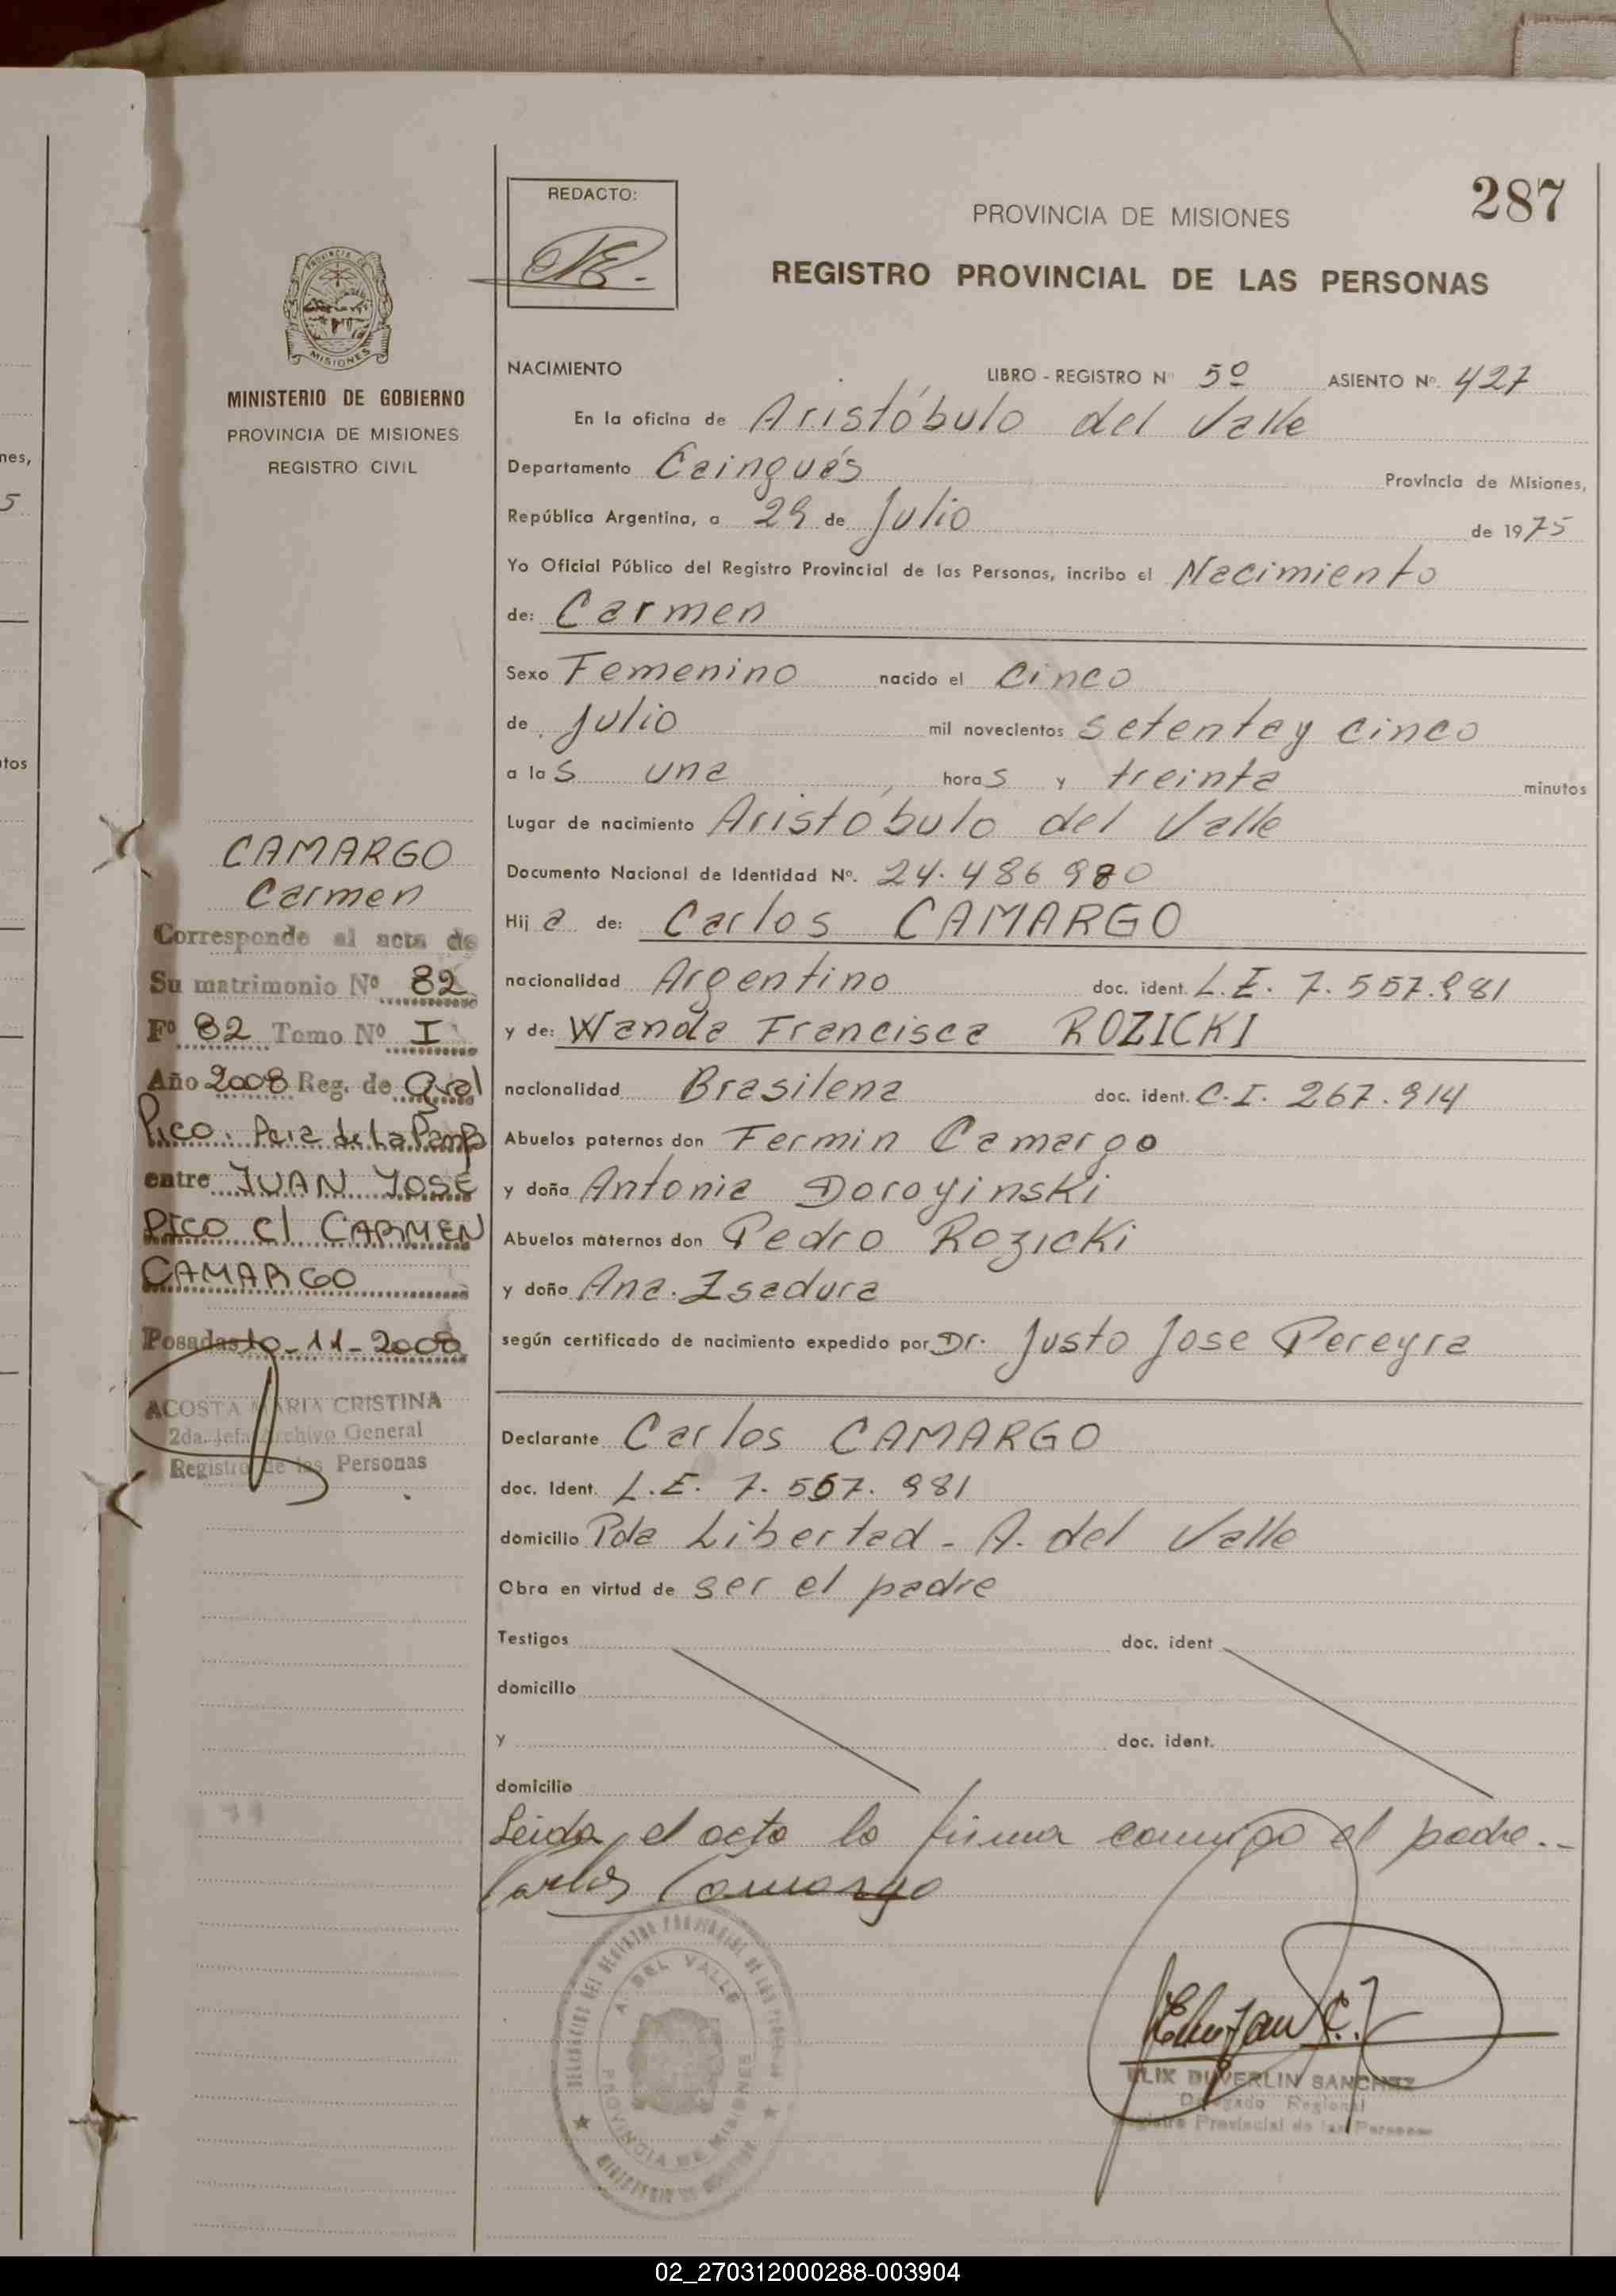 287
REDACTO:
PROVINCIA DE MISIONES
REGISTRO PROVINCIAL DE LAS PERSONAS
MISIONES
MINISTERIO DE GOBIERNO
PROVINCIA DE MISIONES
REGISTRO CIVIL
nes,
5
tos
CAMARGO
Carmen
Corresponde al acta de
Su matrimonio Nº 82
Fº 82 Tomo Nº I
Año 2008 Reg. de Gral
Pico. Pcia de La Pampa
entre JUAN JOSE
PICO c/ CARMEN
CAMARGO
Posadas 10-11-2008
ACOSTA MARIA CRISTINA
2da. Jefa Archivo General
Registro de las Personas
NACIMIENTO LIBRO - REGISTRO Nº 5º ASIENTO Nº. 427
En la oficina de Aristóbulo del Valle
Departamento Cainguás Provincia de Misiones,
República Argentina, a 29 de Julio de 1975
Yo Oficial Público del Registro Provincial de las Personas, incribo el Nacimiento
de: Carmen
Sexo Femenino nacido el cinco
de Julio mil novecientos setenta y cinco
a las una horas y treinta minutos
Lugar de nacimiento Aristóbulo del Valle
Documento Nacional de Identidad Nº. 24.486 980
Hija de: Carlos CAMARGO
nacionalidad Argentino doc. ident. L.E. 7.557.981
y de: Wanda Francisca ROZICKI
nacionalidad Brasilena doc. ident. C.I. 267.914
Abuelos paternos don Fermin Camargo
y doña Antonia Doroyinski
Abuelos maternos don Pedro Rozicki
y doña Ana. Isadura
según certificado de nacimiento expedido por Dr. Justo Jose Pereyra
Declarante Carlos CAMARGO
doc. Ident. L.E. 7.557.981
domicilio Pda Libertad - A. del Valle
Obra en virtud de ser el padre
Testigos doc. ident
domicilio
y doc. ident.
domicilio
Leida, el acta la firma conmigo el padre.-
Carlos Camargo
DELEGACION DEL REGISTRO PROVINCIAL DE LAS PERSONAS
A. DEL VALLE
PROVINCIA DE MISIONES
ELIX DUVERLIN SANCHEZ
Delegado Regional
Registro Provincial de las Personas
02_270312000288-003904